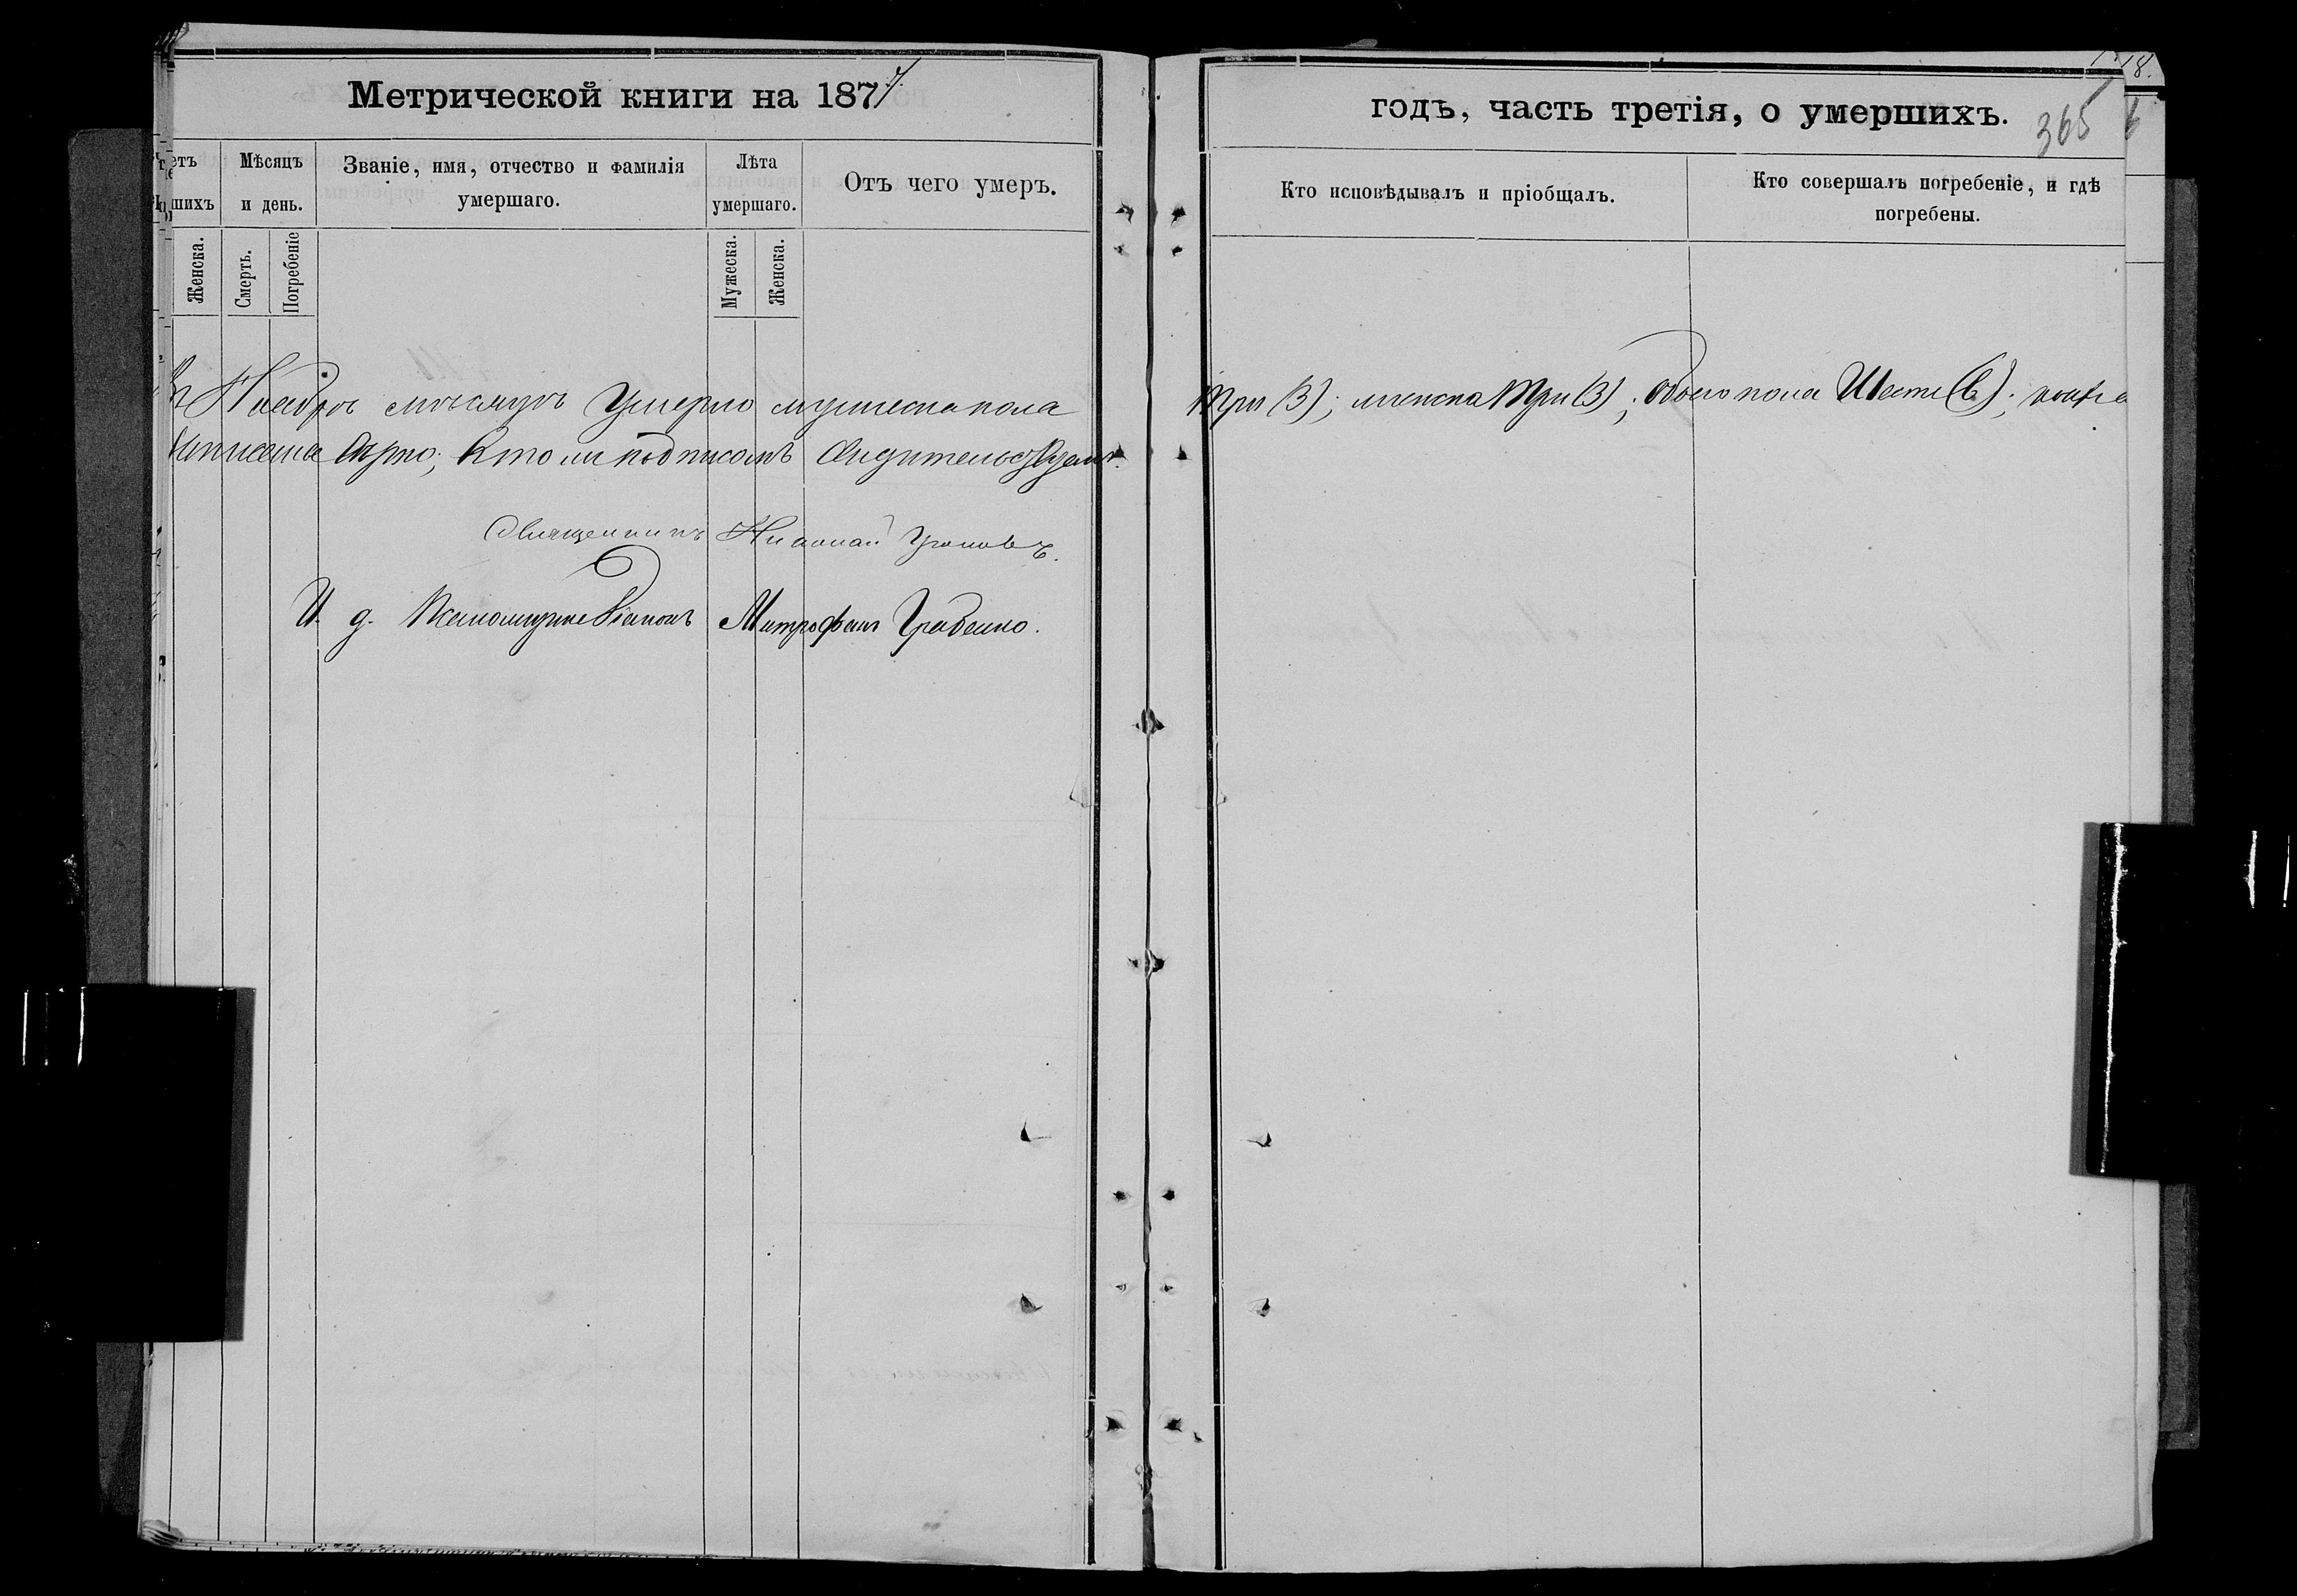 Метрической книги на 1877
годъ, часть третія, о умершихъ.
365
18.
етъ
шихъ
Мѣсяцъ
и день.
Званіе, имя, отчество и фамилія
умершаго.
Лѣта
умершаго.
Отъ чего умеръ.
Кто исповѣдывалъ и пріобщалъ.
Кто совершалъ погребеніе, и гдѣ
погребены.
Женска.
Смерть.
Погребеніе
Мужеска.
Женска.
Ноябрѣ мѣсяцѣ Умерло мужеска пола Три (3); женска Три (3); Обоего пола Шесть (6);
вѣрно; въ томъ подписомъ свидѣтельствуемъ.
Священникъ Николай
И. д. Псаломщика Діаконъ Митрофанъ Грабенко.